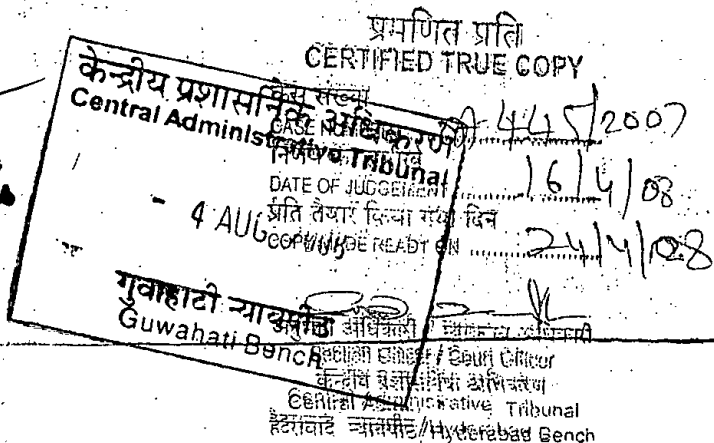 प्रमाणित प्रति
CERTIFIED TRUE COPY
केन्द्रीय प्रशासनिक अधिकरण
Central Administrative Tribunal
- 4 AUG
गुवाहाटी न्यायपीठ
Guwahati Bench
केस संख्या
CASE NO 445/2007
DATE OF JUDGEMENT 16/4/08
प्रति तैयार किया गया दिन
COPY MADE READY ON 24/4/08
Section Officer / Court Officer
केन्द्रीय प्रशासनिक अधिकरण
Central Administrative Tribunal
हैदराबाद न्यायपीठ/Hyderabad Bench